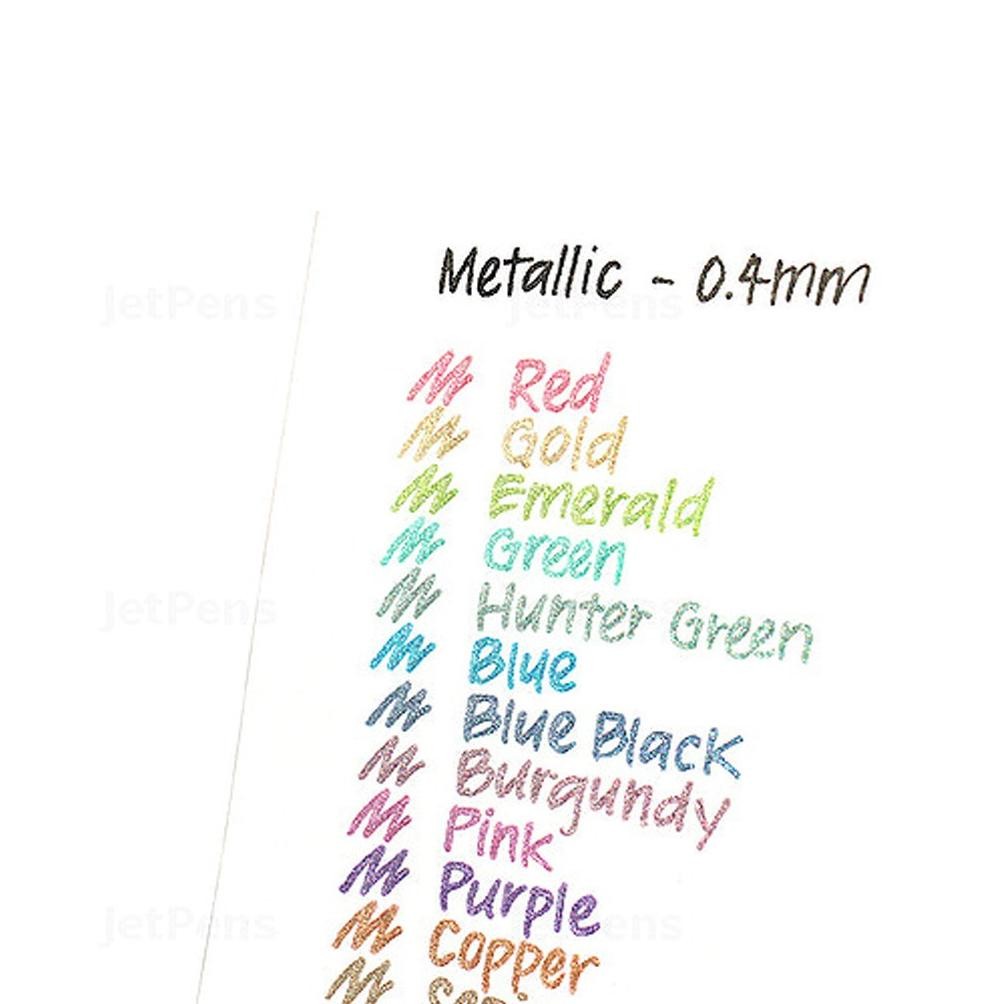 Metallic - 0.4mm
JetPens JetPens
Red
Gold
Emerald
Green
Hunter Green
JetPens
Blue
Blue Black
Burgundy
Pink
Purple
JetPens
Copper